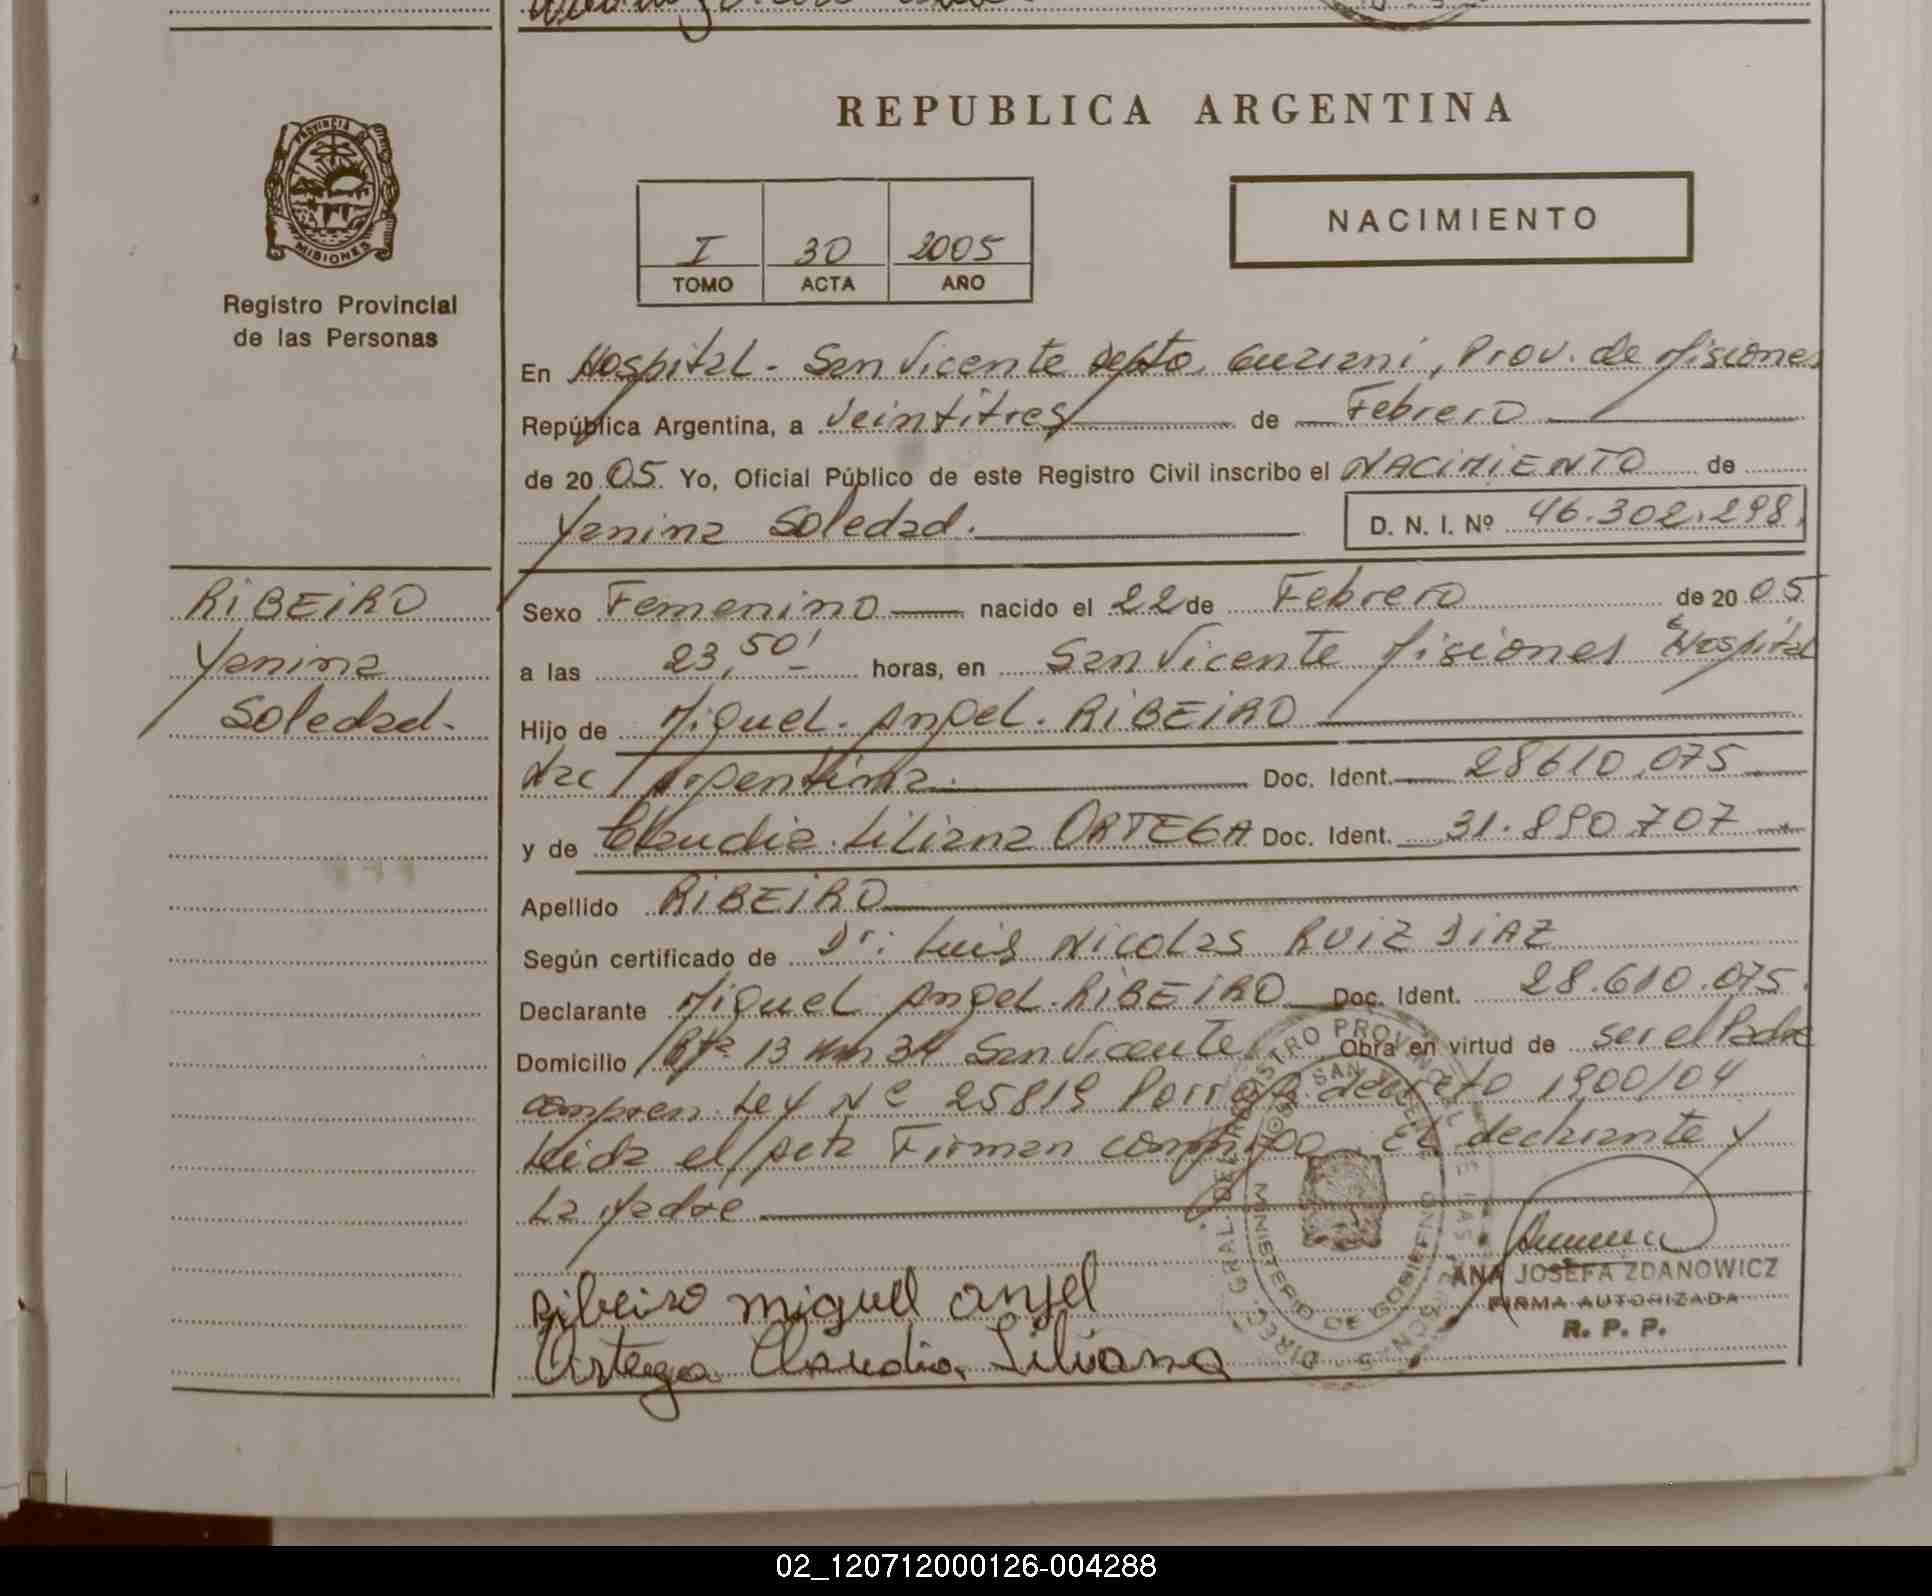 REPUBLICA ARGENTINA
PROVINCIA DE MISIONES
Registro Provincial
de las Personas
I 30 2005
TOMO ACTA AÑO
NACIMIENTO
En Hospital - San Vicente Depto. Guarani, Prov. de Misiones
República Argentina, a Veintitres de Febrero
de 20 05. Yo, Oficial Público de este Registro Civil inscribo el NACIMIENTO de
Yanina Soledad. D. N. I. Nº 46.302.298.
RIBEIRO
Yanina
Soledad.
Sexo Femenino nacido el 22 de Febrero de 20 05
a las 23,50' horas, en San Vicente Misiones Hospital
Hijo de Miguel. Angel. RIBEIRO
Nac Argentina. Doc. Ident. 28610.075
y de Claudia Liliana ORTEGA Doc. Ident. 31.890.707
Apellido RIBEIRO
Según certificado de Dr: Luis Nicolas RUIZ DIAZ
Declarante Miguel Angel RIBEIRO Doc. Ident. 28.610.075.
Domicilio Rta 13 Km 34 San Vicente Obra en virtud de ser el Padre
Ley Nº 25819 decreto 1900/04
Leida el Acta Firman conmigo El declarante y
La Madre
Ribeiro miguel angel
Ortega Claudia Liliana
ANA JOSEFA ZDANOWICZ
FIRMA AUTORIZADA
R. P. P.
MINISTERIO DE GOBIERNO
02_120712000126-004288